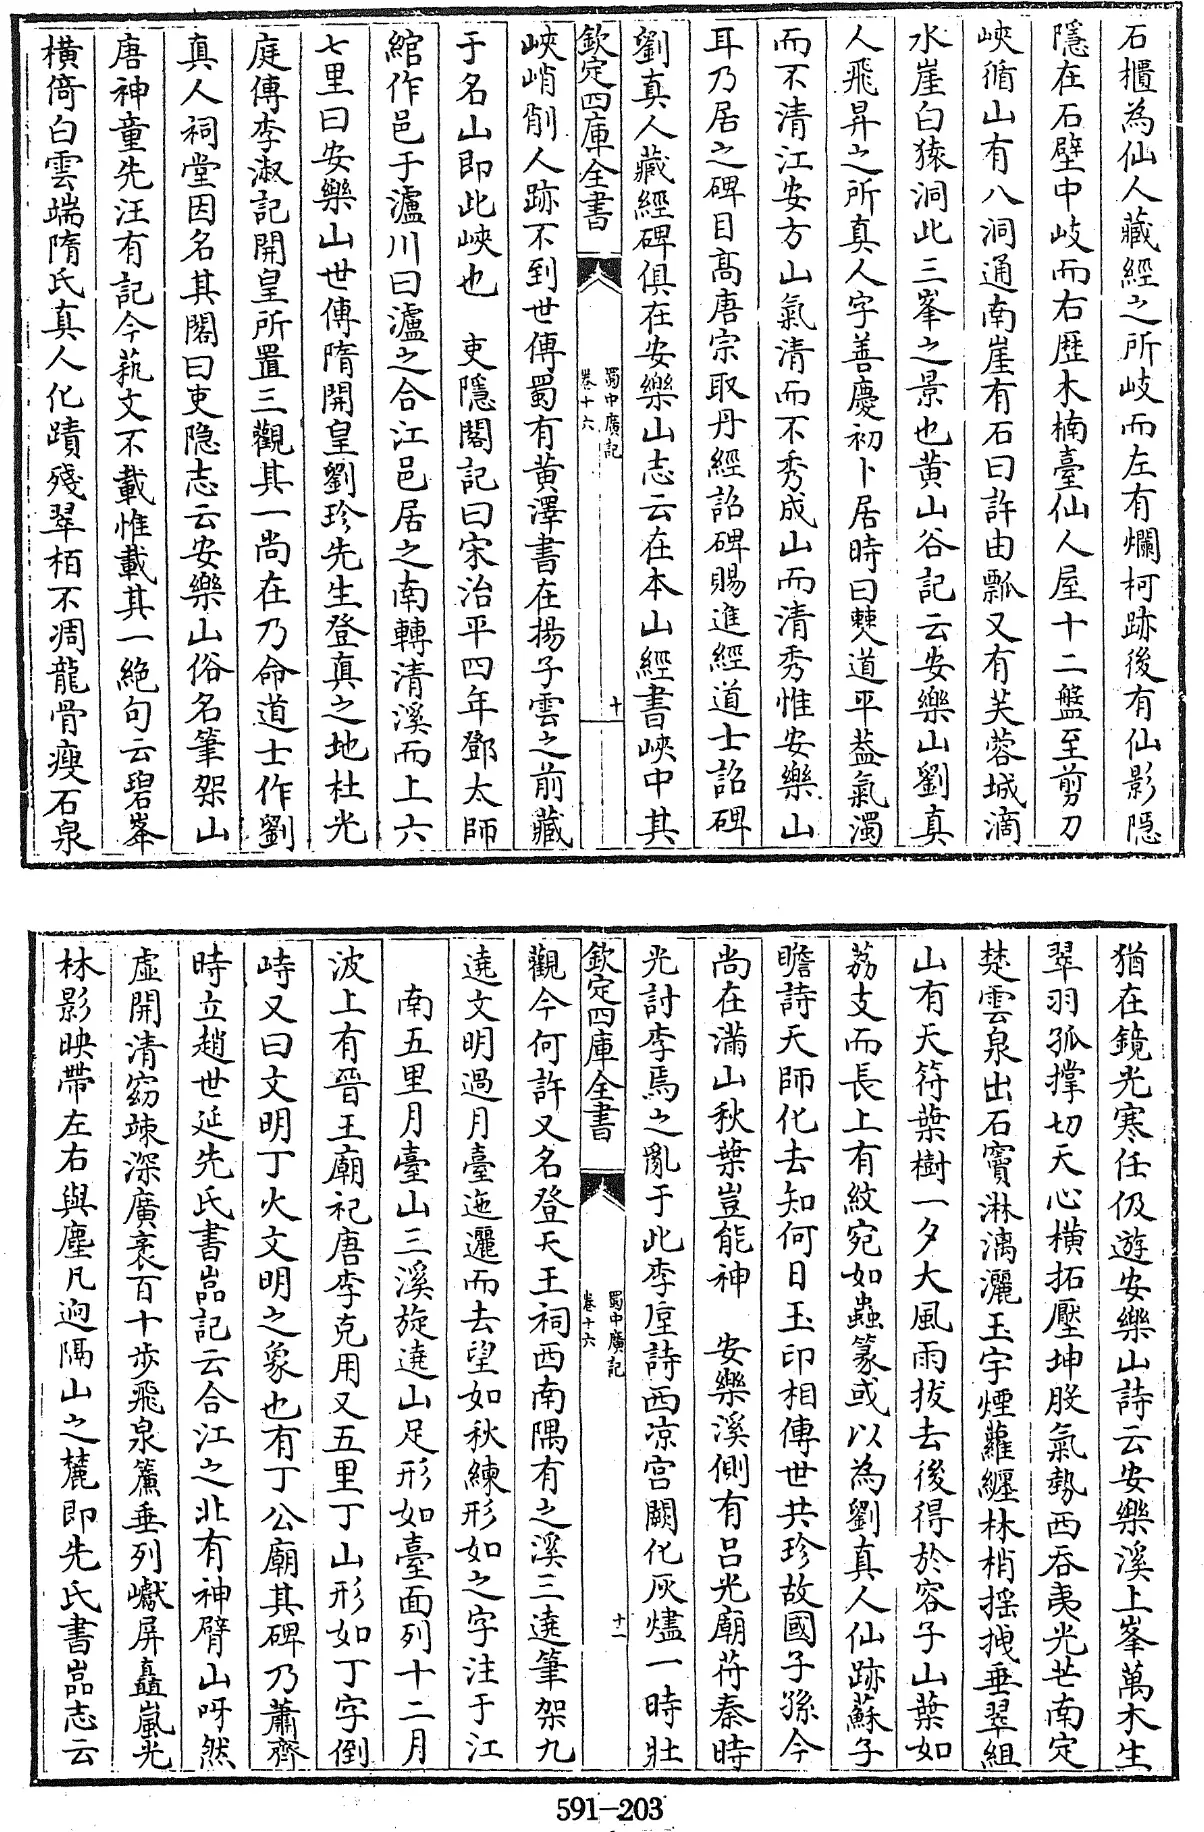 石櫃為仙人藏經之所岐而左有爛柯跡後有仙影隱
隱在石壁中岐而右歴木楠臺仙人屋十二盤至剪刀
峽循山有八洞通南崖有石曰許由瓢又有芙蓉城滴
水崖白猿洞此三峯之景也黄山谷記云安樂山劉真
人飛昇之所真人字善慶初卜居時曰僰道平葢氣濁
而不清江安方山氣清而不秀成山而清秀惟安樂山
耳乃居之碑目髙唐宗取丹經詔碑賜進經道士詔碑
劉真人藏經碑俱在安樂山志云在本山經書峽中其
欽定四庫全書
蜀中廣記
卷十六
十
峽峭削人跡不到世傳蜀有黄澤書在揚子雲之前藏
于名山即此峽也 吏隱閣記曰宋治平四年鄧太師
綰作邑于瀘川曰瀘之合江邑居之南轉清溪而上六
七里曰安樂山世傳隋開皇劉珍先生登真之地杜光
庭傳李淑記開皇所置三觀其一尚在乃命道士作劉
真人祠堂因名其閣曰吏隐志云安樂山俗名筆架山
唐神童先汪有記今蓺文不載惟載其一絶句云碧峯
横倚白雲端隋氏真人化蹟殘翠栢不凋龍骨瘦石泉
猶在鏡光寒任伋遊安樂山詩云安樂溪上峯萬木生
翠羽孤撑切天心横拓壓坤股氣勢西吞夷光芒南定
楚雲泉出石竇淋漓灑玉宇煙蘿纒林梢揺拽垂翠組
山有天符葉樹一夕大風雨拔去後得於容子山葉如
荔支而長上有紋宛如蟲篆或以為劉真人仙跡蘇子
瞻詩天師化去知何日玉印相傳世共珍故國子孫今
尚在滿山秋葉豈能神 安樂溪側有吕光廟苻秦時
光討李焉之亂于此李垕詩西凉宫闕化灰燼一時壯
欽定四庫全書
蜀中廣記
卷十六
十一
觀今何許又名登天王祠西南隅有之溪三遶筆架九
遶文明過月臺迤邐而去望如秋練形如之字注于江
南五里月臺山三溪旋遶山足形如臺面列十二月
波上有晉王廟祀唐李克用又五里丁山形如丁字倒
峙又曰文明丁火文明之象也有丁公廟其碑乃蕭齊
時立趙世延先氏書嵓記云合江之北有神臂山呀然
虚開清窈竦深廣袤百十歩飛泉簾垂列巘屏矗嵐光
林影映帶左右與塵凡逈隔山之麓即先氏書嵓志云
591-203